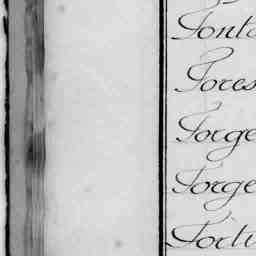 Font
Fores
Forge
Forge
Forti